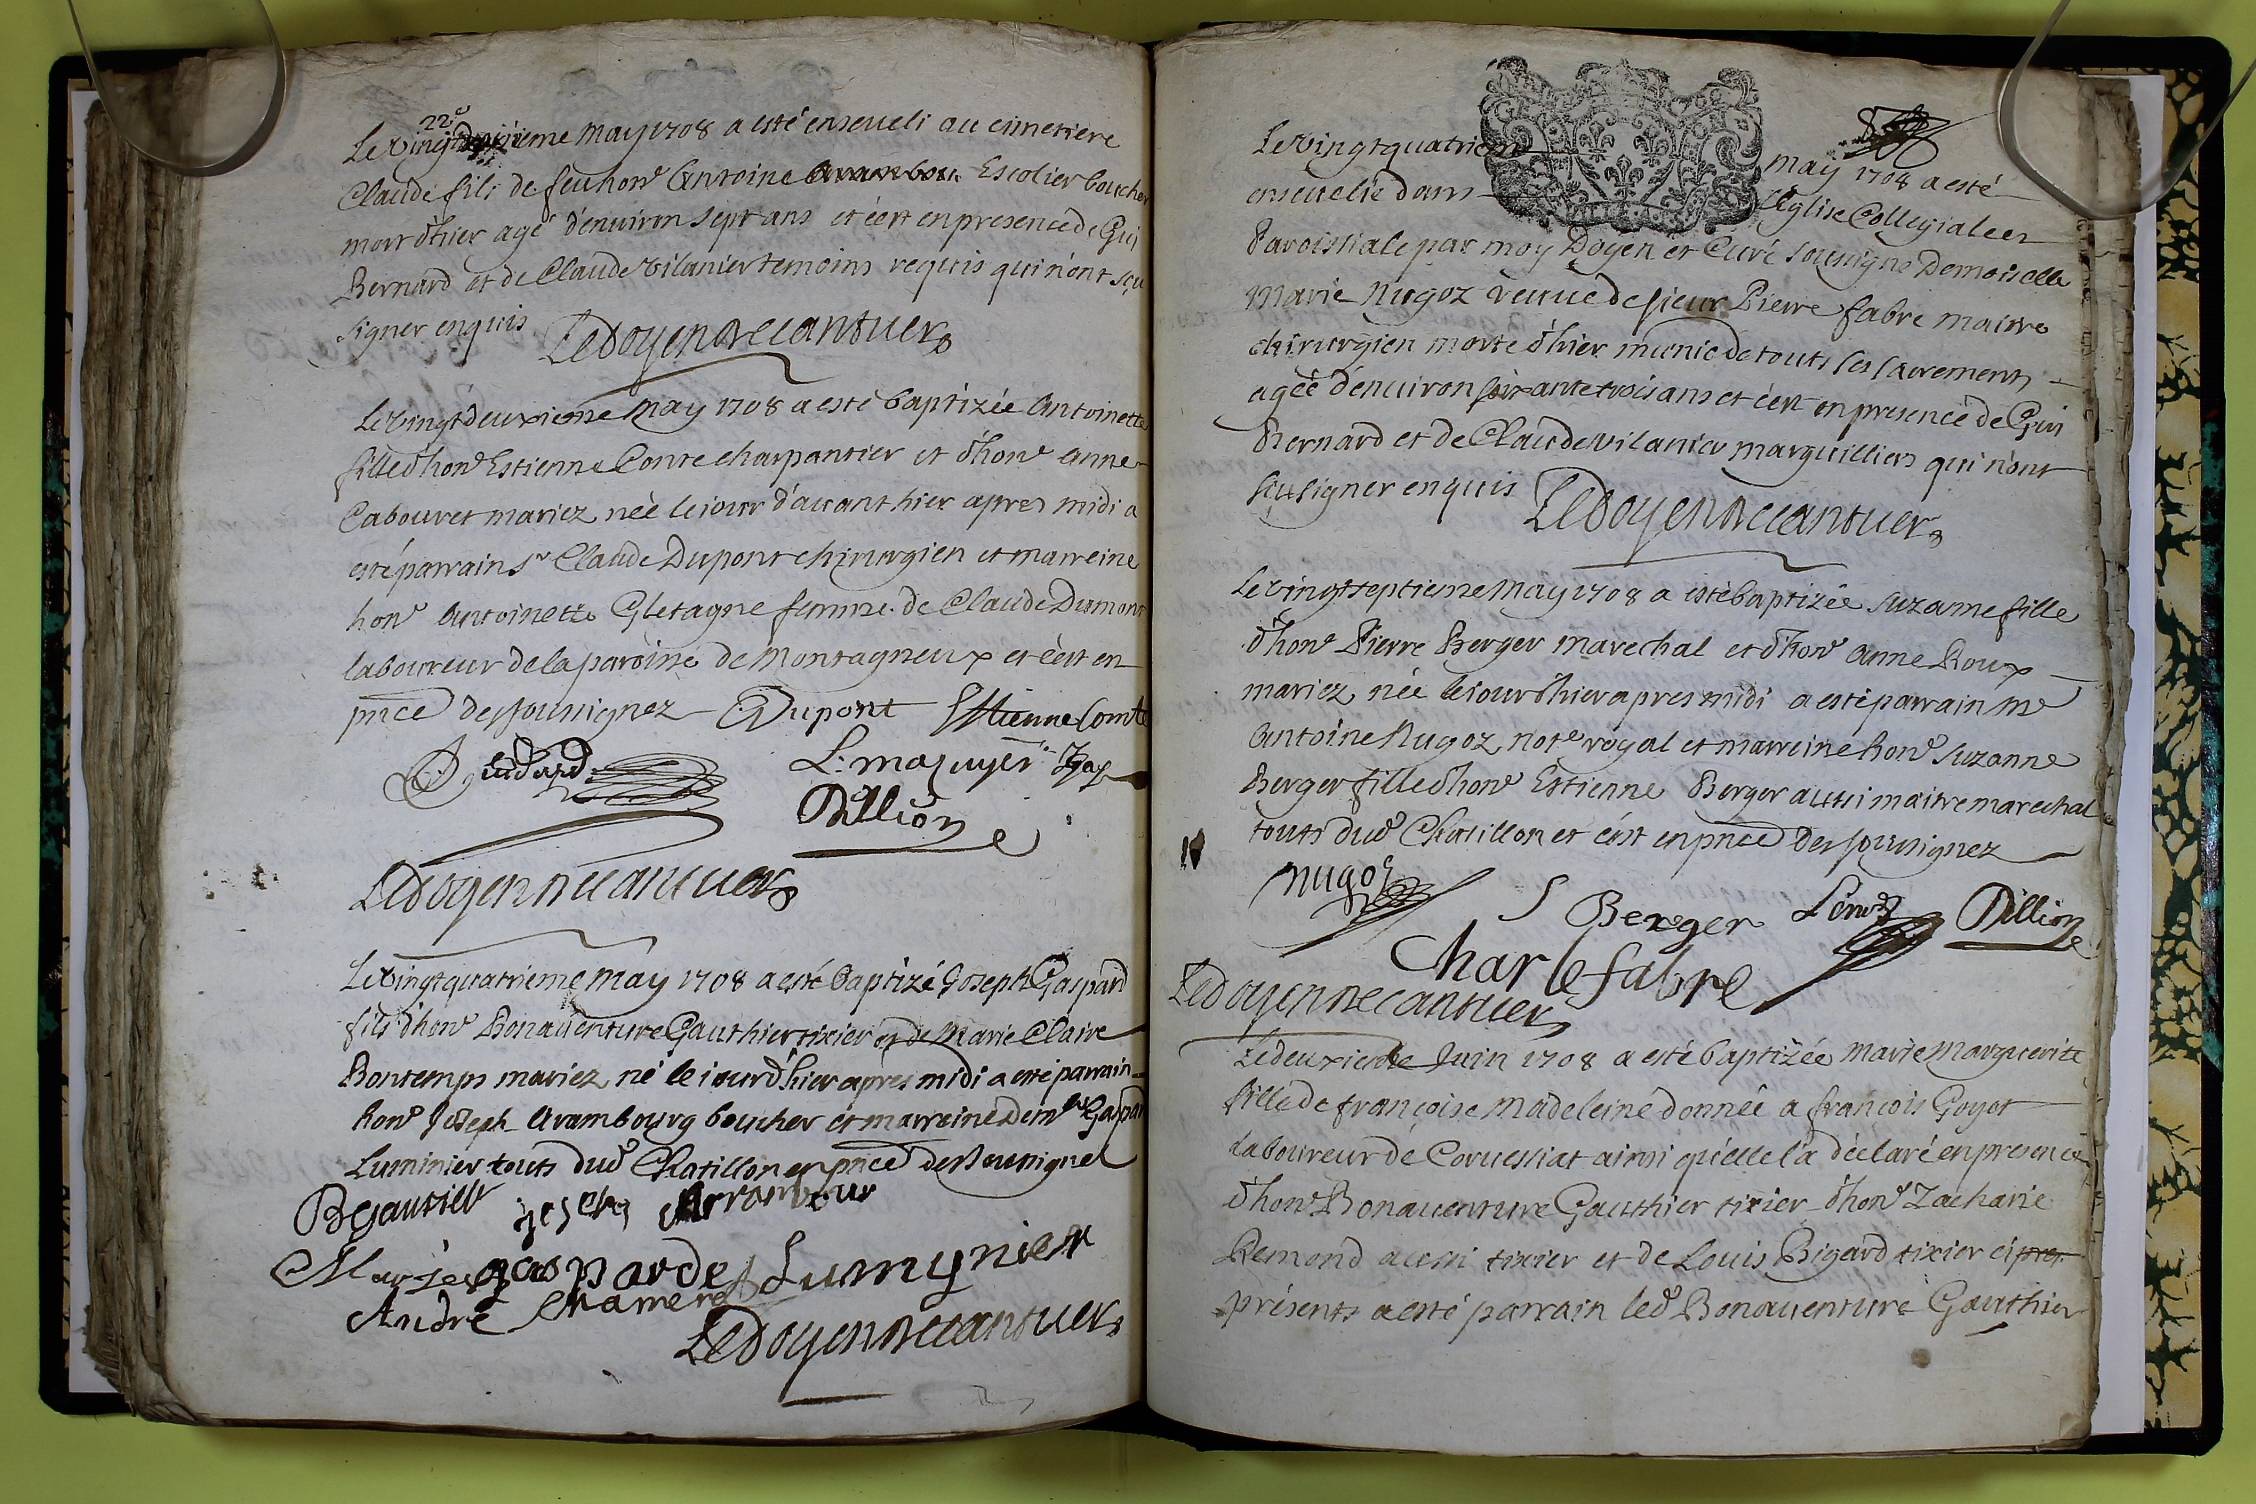 22e
Le vingt deuxieme May 1708 a esté enseveli au cimetiere
Claude fils de feu hone Antoine Escolier boucher
mort d'hier agé d'environ sept ans et c'est en presence de Gui
Bernard et de Claude Vilanier temoins requis qui n'ont sçu
signer enquis Le doyen Decantuers
Le vingt deuxieme May 1708 a esté baptizée Antoinette
fille d'hone Estienne Conte charpantier et d'hone Anne
Cabouret mariez née le iour d'avant hier apres midi a
esté parrain sr Claude Dupont chirurgien et marreine
hone Antoinette Gletagne femme de Claude Dumont
laboureur de la paroisse de Montagneux et c'est en
pnce des soussignez Dupont Estienne Comte
L. mazuyer
Dillion
Le doyen Decantuers
Le vingt quatrieme May 1708 a esté baptizé Joseph Gaspard
fils d'hone Bonaventure Gauthier tixier et de Marie Claire
Bontemps mariez né le iour d'hier apres midi a esté parrain
hone Joseph Arambourg boucher et marreine Demlle Gaspar
Luminier touts dud Chatillon en pnce des soussignel
B gautier ioseph Arrambour
Marie gasparde Lumynier
André Chamerd
Le doyen Decantuers
Le vingt quatrieme May 1708 a esté
ensevelie dans l'Eglise Collegiale et
Paroissiale par moy Doyen et Curé soussigné Demoiselle
Marie Nugoz veuve de sieur Pierre Fabre maitre
chirurgien morte d'hier munie de touts ses sacrements
agée d'environ soixante trois ans et c'est en presence de Gui
Bernard et de Claude Vilanier marguilliers qui n'ont
sçu signer enquis Le doyen Decantuers
Le vingt septieme May 1708 a esté baptizée Suzanne fille
d'hone Pierre Berger marechal et d'hone Anne Roux
mariez née le iour d'hier apres midi a esté parrain me
Antoine Nugoz note royal et marreine hone Suzanne
Berger fille d'hone Estienne Berger aussi maitre marechal
touts dud Chatillon et c'est en pnce des soussignez
nugoz S Berger Dillion
Charle fabre
Le doyen Decantuers
Le deuxieme Juin 1708 a esté baptizée Marie Marguerite
fille de françoise Madeleine donnée a françois Goyot
laboureur de Corvessiat ainsi qu'elle l'a déclaré en presence
d'hone Bonaventure Gauthier tixier d'hone Zacharie
Remond aussi tixier et de Louis Bigard tixier ci pres
présents a esté parrain led Bonaventure Gauthier